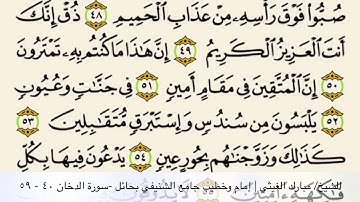 صُبُّوا۟ فَوْقَ رَأْسِهِۦ مِنْ عَذَابِ ٱلْحَمِيمِ ٤٨ ذُقْ إِنَّكَ
أَنتَ ٱلْعَزِيزُ ٱلْكَرِيمُ ٤٩ إِنَّ هَٰذَا مَا كُنتُم بِهِۦ تَمْتَرُونَ
٥٠ إِنَّ ٱلْمُتَّقِينَ فِى مَقَامٍ أَمِينٍ ٥١ فِى جَنَّٰتٍ وَعُيُونٍ
٥٢ يَلْبَسُونَ مِن سُندُسٍ وَإِسْتَبْرَقٍ مُّتَقَٰبِلِينَ ٥٣
كَذَٰلِكَ وَزَوَّجْنَٰهُم بِحُورٍ عِينٍ ٥٤ يَدْعُونَ فِيهَا بِكُلِّ
للشيخ/ مبارك الغيثي | إمام وخطيب جامع الشنيفي بحائل -سورة الدخان ٤٠ - ٥٩